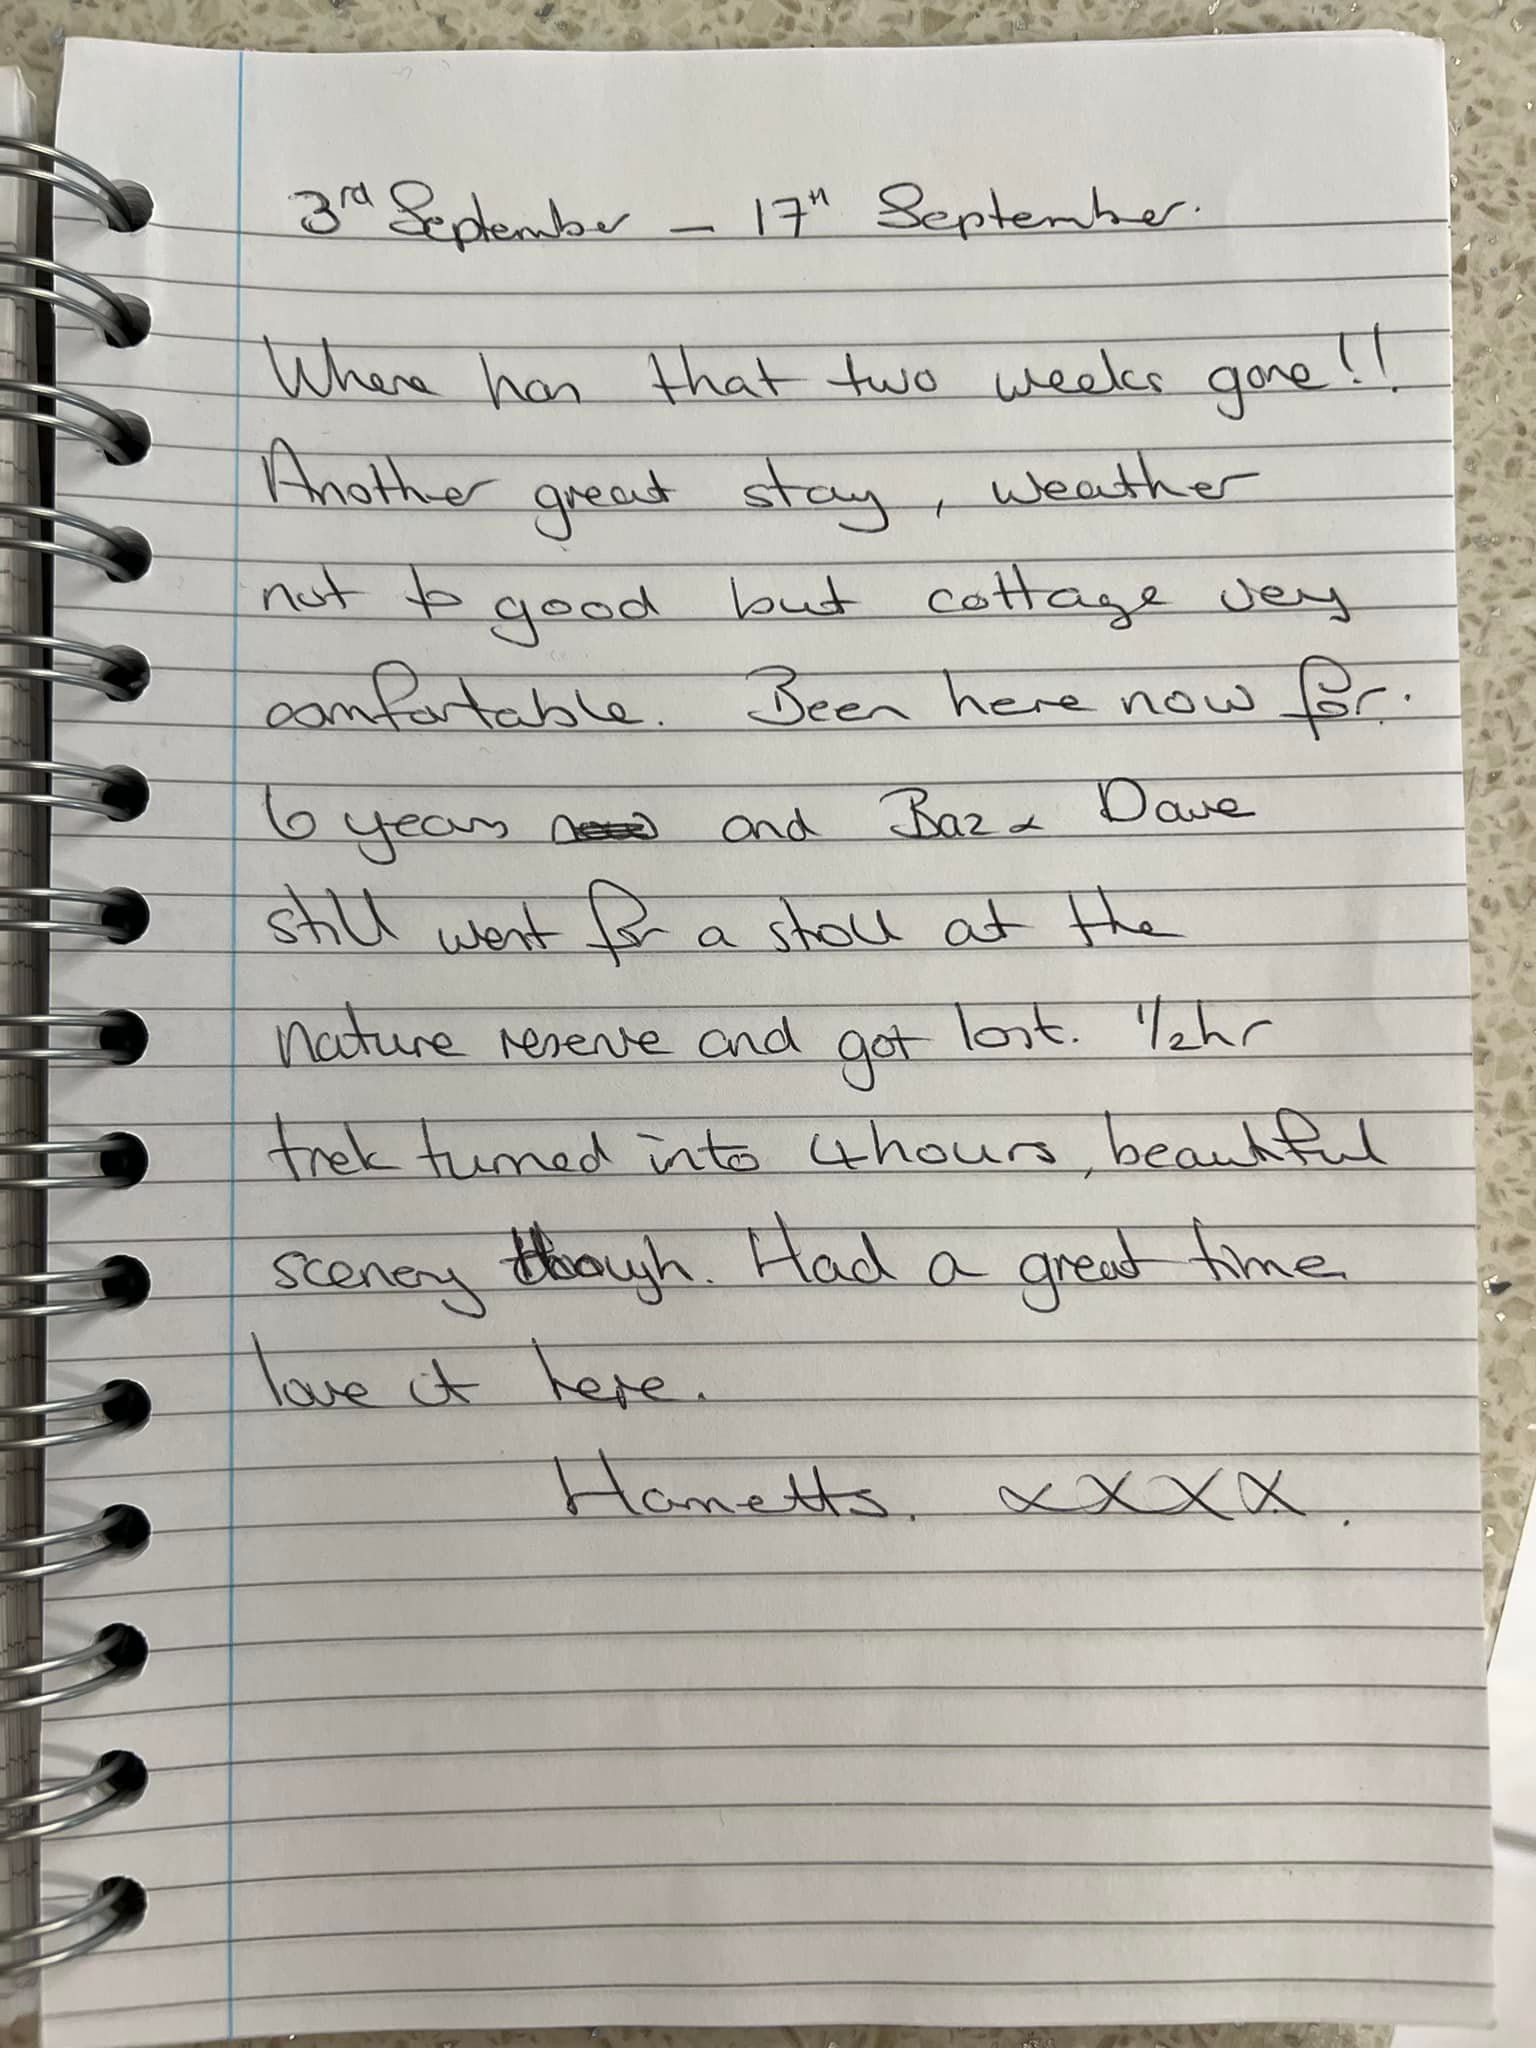 3rd September - 17th September.
Where has that two weeks gone!!
Another great stay, weather
not to good but cottage very
comfortable. Been here now for.
6 years and Baz & Dave
still went for a stroll at the
nature reserve and got lost. 1/2hr
trek turned into 4hours, beautiful
scenery though. Had a great time
love it here.
xxxx.